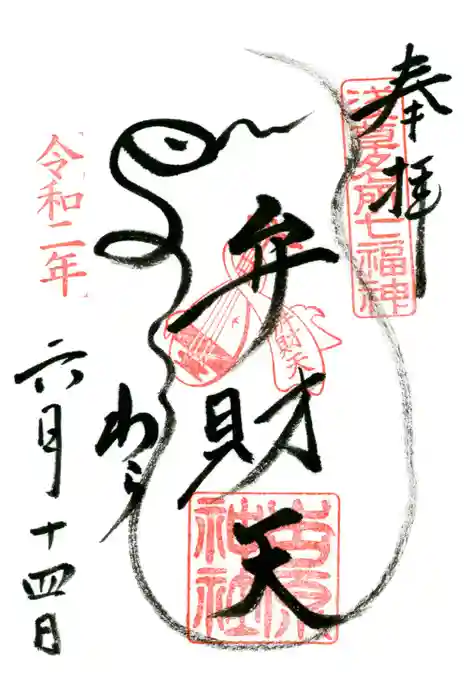 奉拝
淺草名所七福神
弁財天
弁財天
吉原神社
わら
令和二年
六月十四日